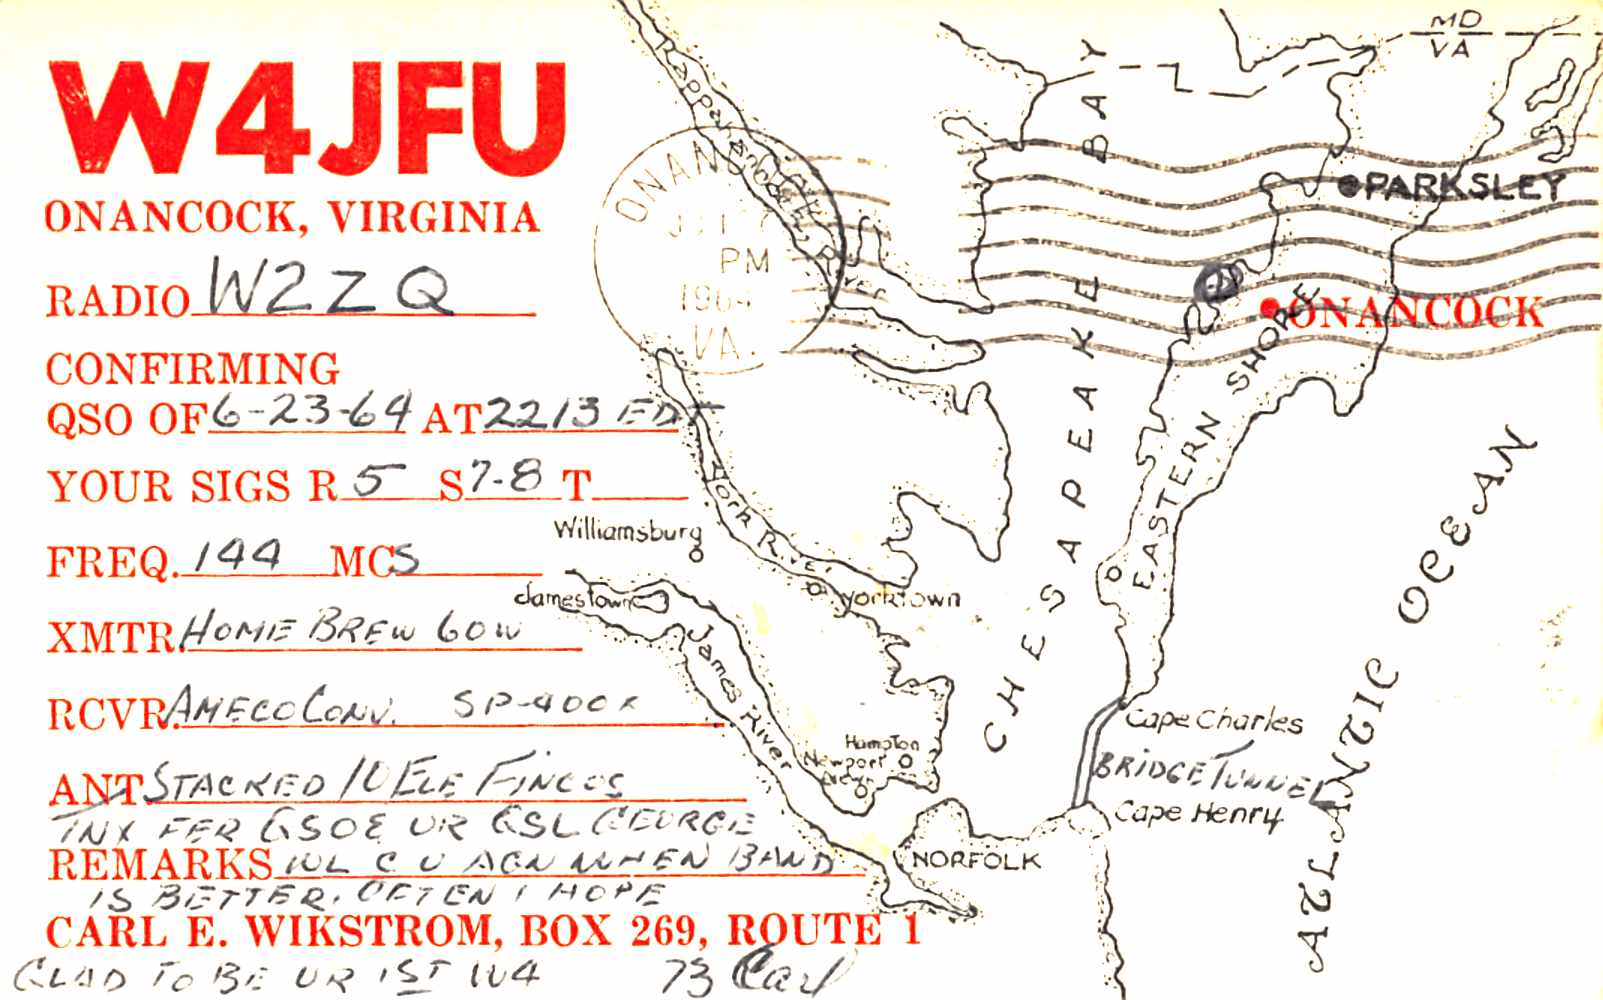 W4JFU
ONANCOCK, VIRGINIA
RADIO W2ZQ
CONFIRMING
QSO OF 6-23-64 AT 2213 EDT
YOUR SIGS R 5 S 7-8 T
FREQ. 144 MCS
XMTR. HOME BREW 60W
RCVR. AMECO CONV. SP-400X
ANT STACKED 10 ELE FINCOS
TNX FER QSO & UR QSL GEORGE
REMARKS WL C U AGN WHEN BAND
IS BETTER, OFTEN I HOPE
CARL E. WIKSTROM, BOX 269, ROUTE 1
GLAD TO BE UR 1ST W4 73 Carl
ONANCOCK
PM
1964
VA.
MD
VA
Rappahannock River
CHESAPEAKE BAY
PARKSLEY
ONANCOCK
EASTERN SHORE
York River
Williamsburg
Jamestown
Yorktown
James River
Hampton
Newport
News
Cape Charles
BRIDGE TUNNEL
Cape Henry
NORFOLK
ATLANTIC OCEAN